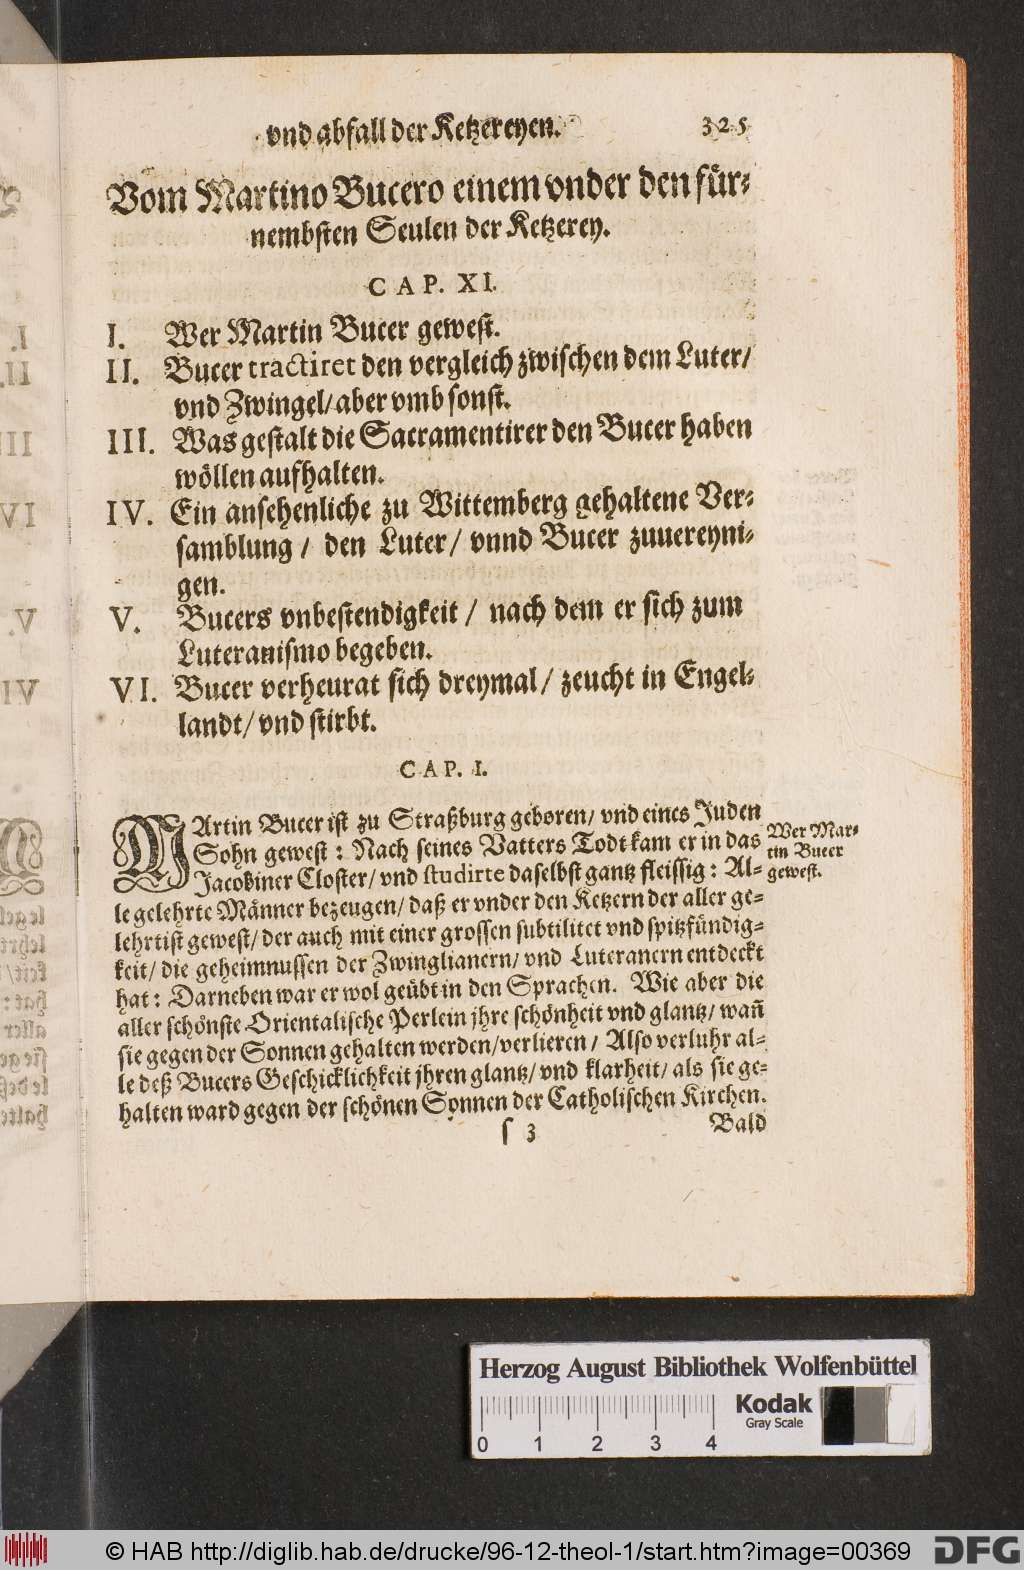 vnd abfall der Ketzereyen. 325
Vom Martino Bucero einem vnder den für-
nembsten Seulen der Ketzerey.
CAP. XI.
I. Wer Martin Bucer gewest.
II. Bucer tractiret den vergleich zwischen dem Luter/
vnd Zwingel/ aber vmb sonst.
III. Was gestalt die Sacramentirer den Bucer haben
wöllen aufhalten.
IV. Ein ansehenliche zu Wittemberg gehaltene Ver-
samblung / den Luter / vnnd Bucer zuuereyni-
gen.
V. Bucers vnbestendigkeit / nach dem er sich zum
Luteranismo begeben.
VI. Bucer verheurat sich dreymal / zeucht in Engel-
landt/ vnd stirbt.
CAP. I.
MArtin Bucer ist zu Straßburg geboren/ vnd eines Juden
Sohn gewest : Nach seines Vatters Todt kam er in das
Jacobiner Closter/ vnd studirte daselbst gantz fleissig : Al-
le gelehrte Männer bezeugen/ daß er vnder den Ketzern der aller ge-
lehrtist gewest/ der auch mit einer grossen subtilitet vnd spitzfündig-
keit/ die geheimnussen der Zwinglianern/ vnd Luteranern entdeckt
hat : Darneben war er wol geübt in den Sprachen. Wie aber die
aller schönste Orientalische Perlein jhre schönheit vnd glantz/ wañ
sie gegen der Sonnen gehalten werden/ verlieren / Also verluhr al-
le deß Bucers Geschicklichkeit jhren glantz/ vnd klarheit/ als sie ge-
halten ward gegen der schönen Sonnen der Catholischen Kirchen.
ſ 3 Bald
Wer Mar-
tin Bucer
gewest.
Herzog August Bibliothek Wolfenbüttel
Kodak
Gray Scale
0 1 2 3 4
© HAB http://diglib.hab.de/drucke/96-12-theol-1/start.htm?image=00369
DFG